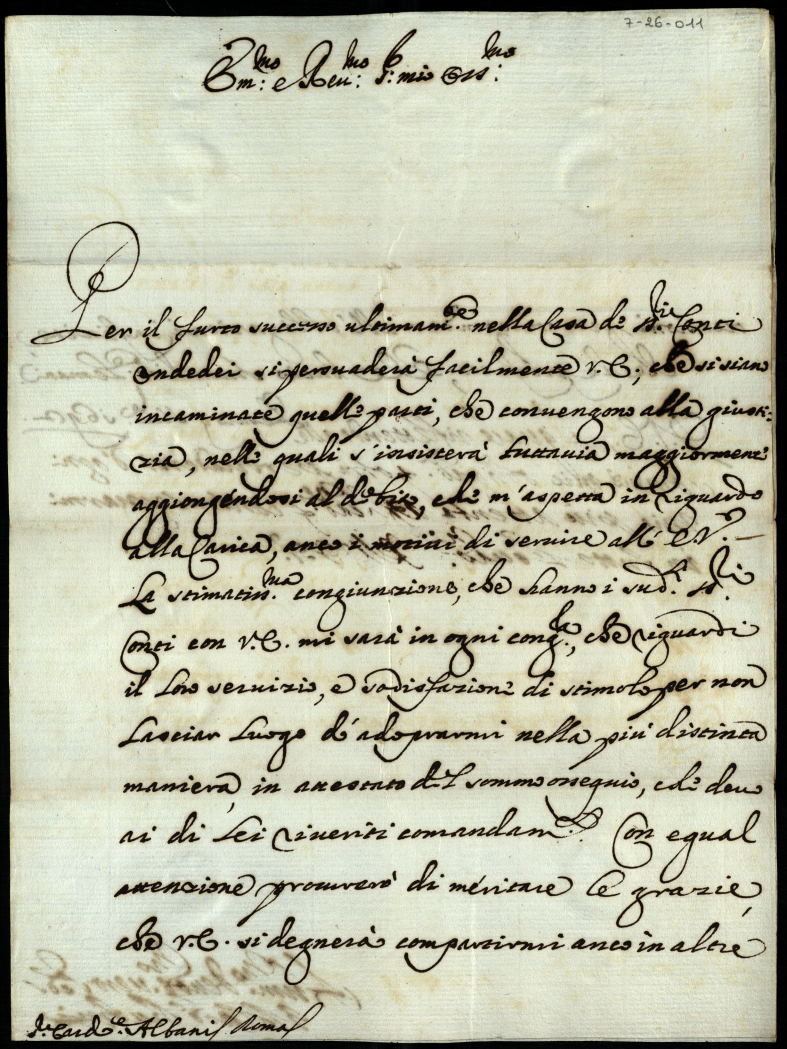 7-26-011
Em:mo e Reu:mo S: mio Oss:mo
Per il furto successo ultimam.te nella Casa de SS.ri Conti
Ondedei si persuaderà facilmente V.E., che si siano
incaminate quelle parti, che convengono alla giusti:
zia, nelle quali s'insisterà tuttavia maggiorment.e
aggiongendosi al debito, che m'aspetta in riguardo
alla Carica, anco i motivi di servire all' E V.ra
La stimatiss.ma congiunzione, che hanno i sud.i SS.ri
Conti con V.E. mi sarà in ogni cong.ra, che riguardi
il loro servizio, e sodisfazione di stimolo per non
lasciar luogo d'adoprarmi nella più distinta
maniera, in attestato del sommo ossequio, che devo
ai di Lei riveriti comandam.ti Con egual
attenzione procurerò di meritare le grazie,
che V.E. si degnerà compartirmi anco in altre
S.r Card.le Albani Roma